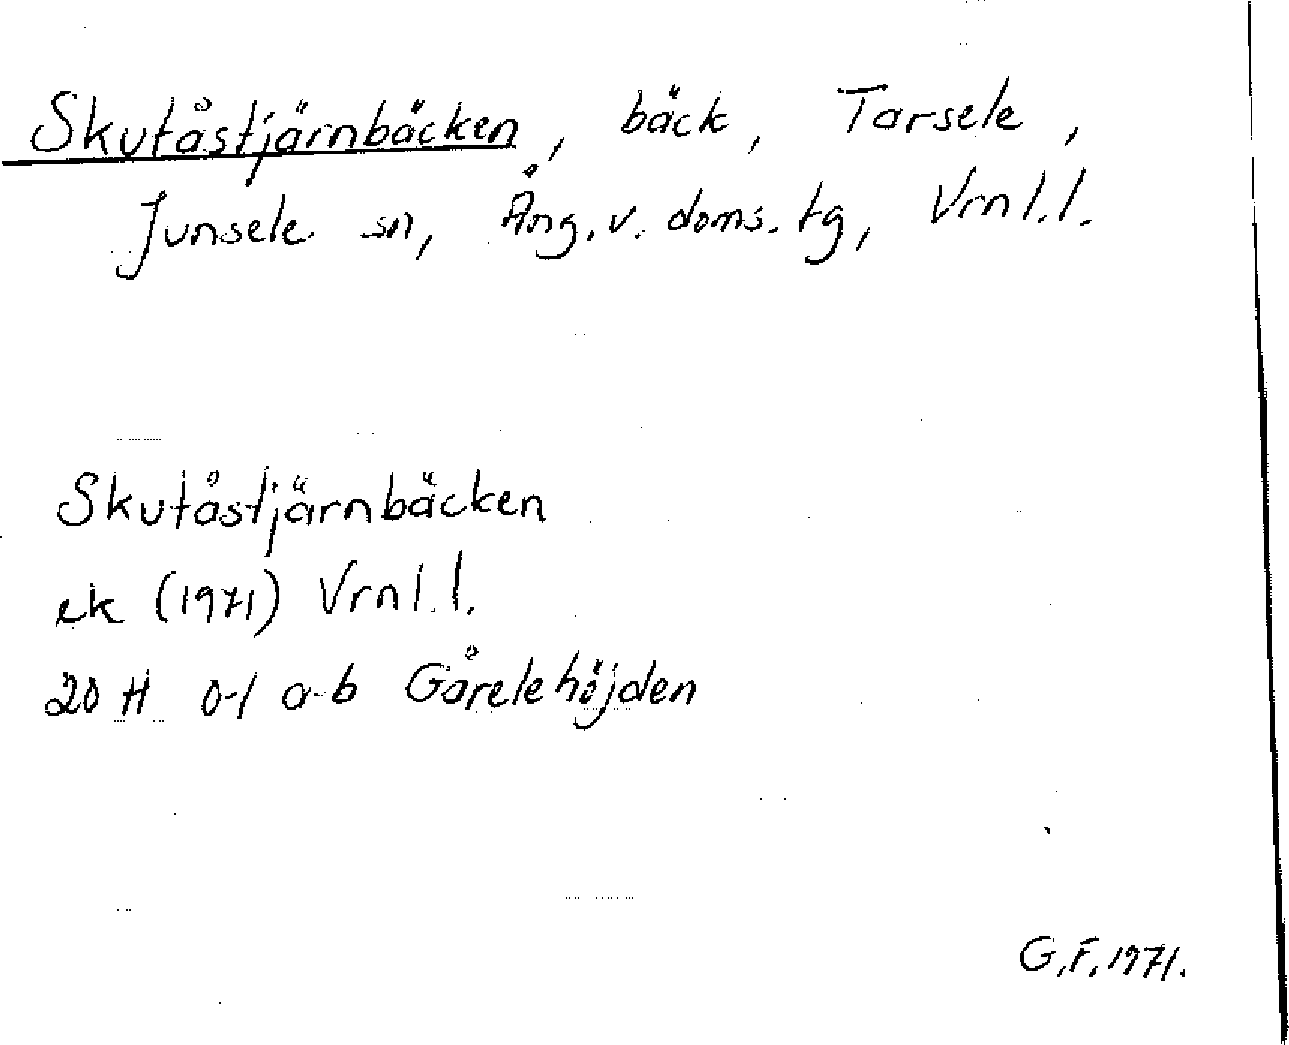 Skutåstjärnbäcken, bäck, Tarsele,
Junsele sn, Ång. v. doms. tg, Vrnl. l.
Skutåstjärnbäcken
ek (1971) Vrnl. l.
20 H 0-1 a-b Gårelehöjden
G.F. 1971.